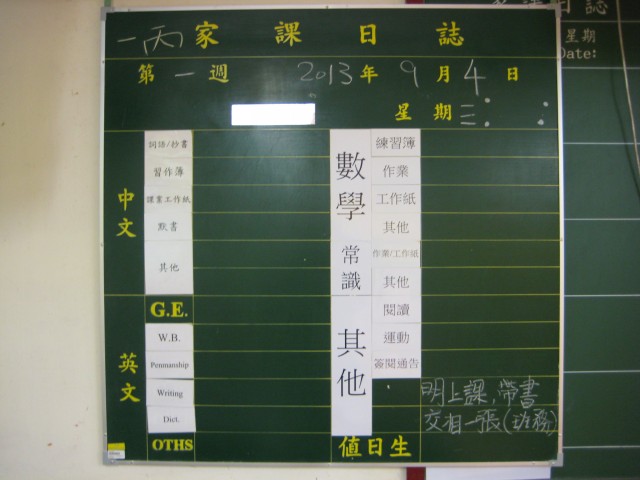 一丙家課日誌
第一週 2013年9月4日
星期三
中文
詞語/抄書
習作簿
課業工作紙
默書
其他
英文
G.E.
W.B.
Penmanship
Writing
Dict.
OTHS
數學
練習簿
作業
工作紙
其他
常識
作業/工作紙
其他
其他
閱讀
運動
簽閱通告
明上課,帶書
交相一張(班務)
值日生
日誌
星期
Date: